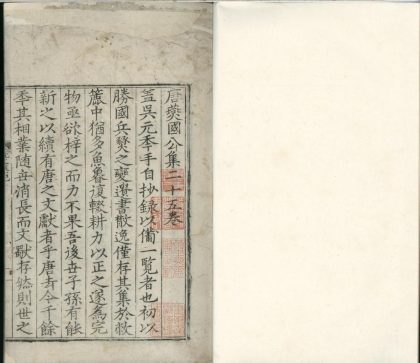 唐燕國公集二十五卷
蓋吳元季手自抄錄以備一覽者也初以
勝國兵燹之變遺書散逸僅存其集於敝
簏中猶多魚魯復輟耕力以正之遂為完
物亟欲梓之而力不果吾後世子孫有能
新之以續有唐之文獻者乎唐去今千餘
季其相業隨世消長而文獻存然則世之